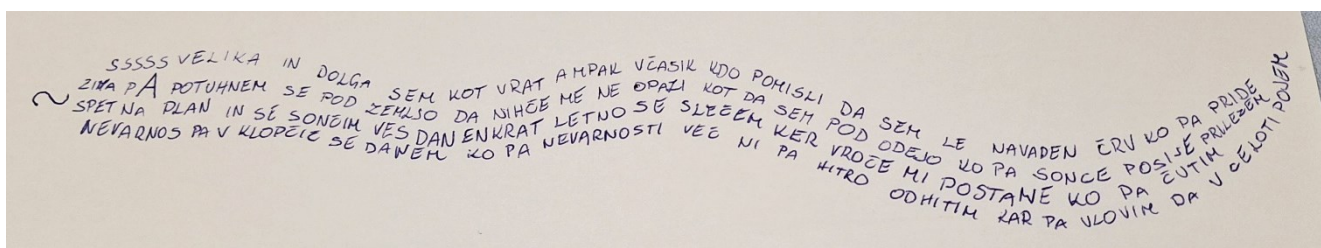 SSSSS VELIKA IN DOLGA SEM KOT VRAT AMPAK VČASIK KDO POMISLI DA SEM LE NAVADEN ČRV KO PA PRIDE
ZIMA PA POTUHNEM SE POD ZEMLJO DA NIHČE ME NE OPAZI KOT DA SEM POD ODEJO KO PA SONCE POSIJE PRILEZEM
SPET NA PLAN IN SE SONČIM VES DAN ENKRAT LETNO SE SLEČEM KER VROČE MI POSTANE KO PA ČUTIM
NEVARNOS PA V KLOPČIČ SE DANEM KO PA NEVARNOSTI VEČ NI PA HITRO ODHITIM KAR PA VLOVIM DA V CELOTI POJEM